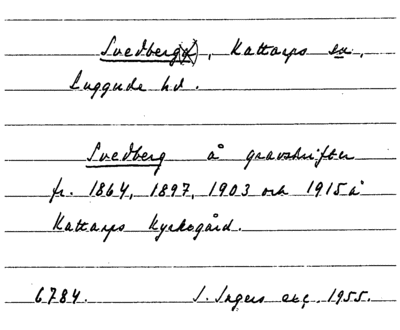 Svedberg, Kattarps sn,
Luggude hd.
Svedberg å gravskrifter
fr. 1864, 1897, 1903 och 1915 å
Kattarps kyrkogård.
6784. I. Ingers exc. 1955.